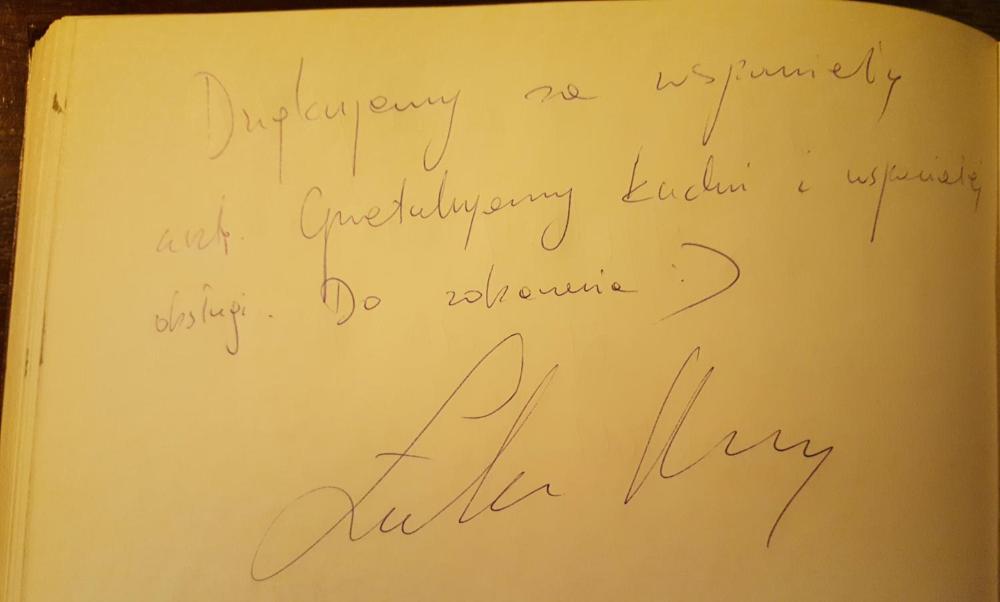 Dziękujemy za wspaniały
Gratulujemy kuchni i wspaniałej
obsługi. Do zobaczenia :D